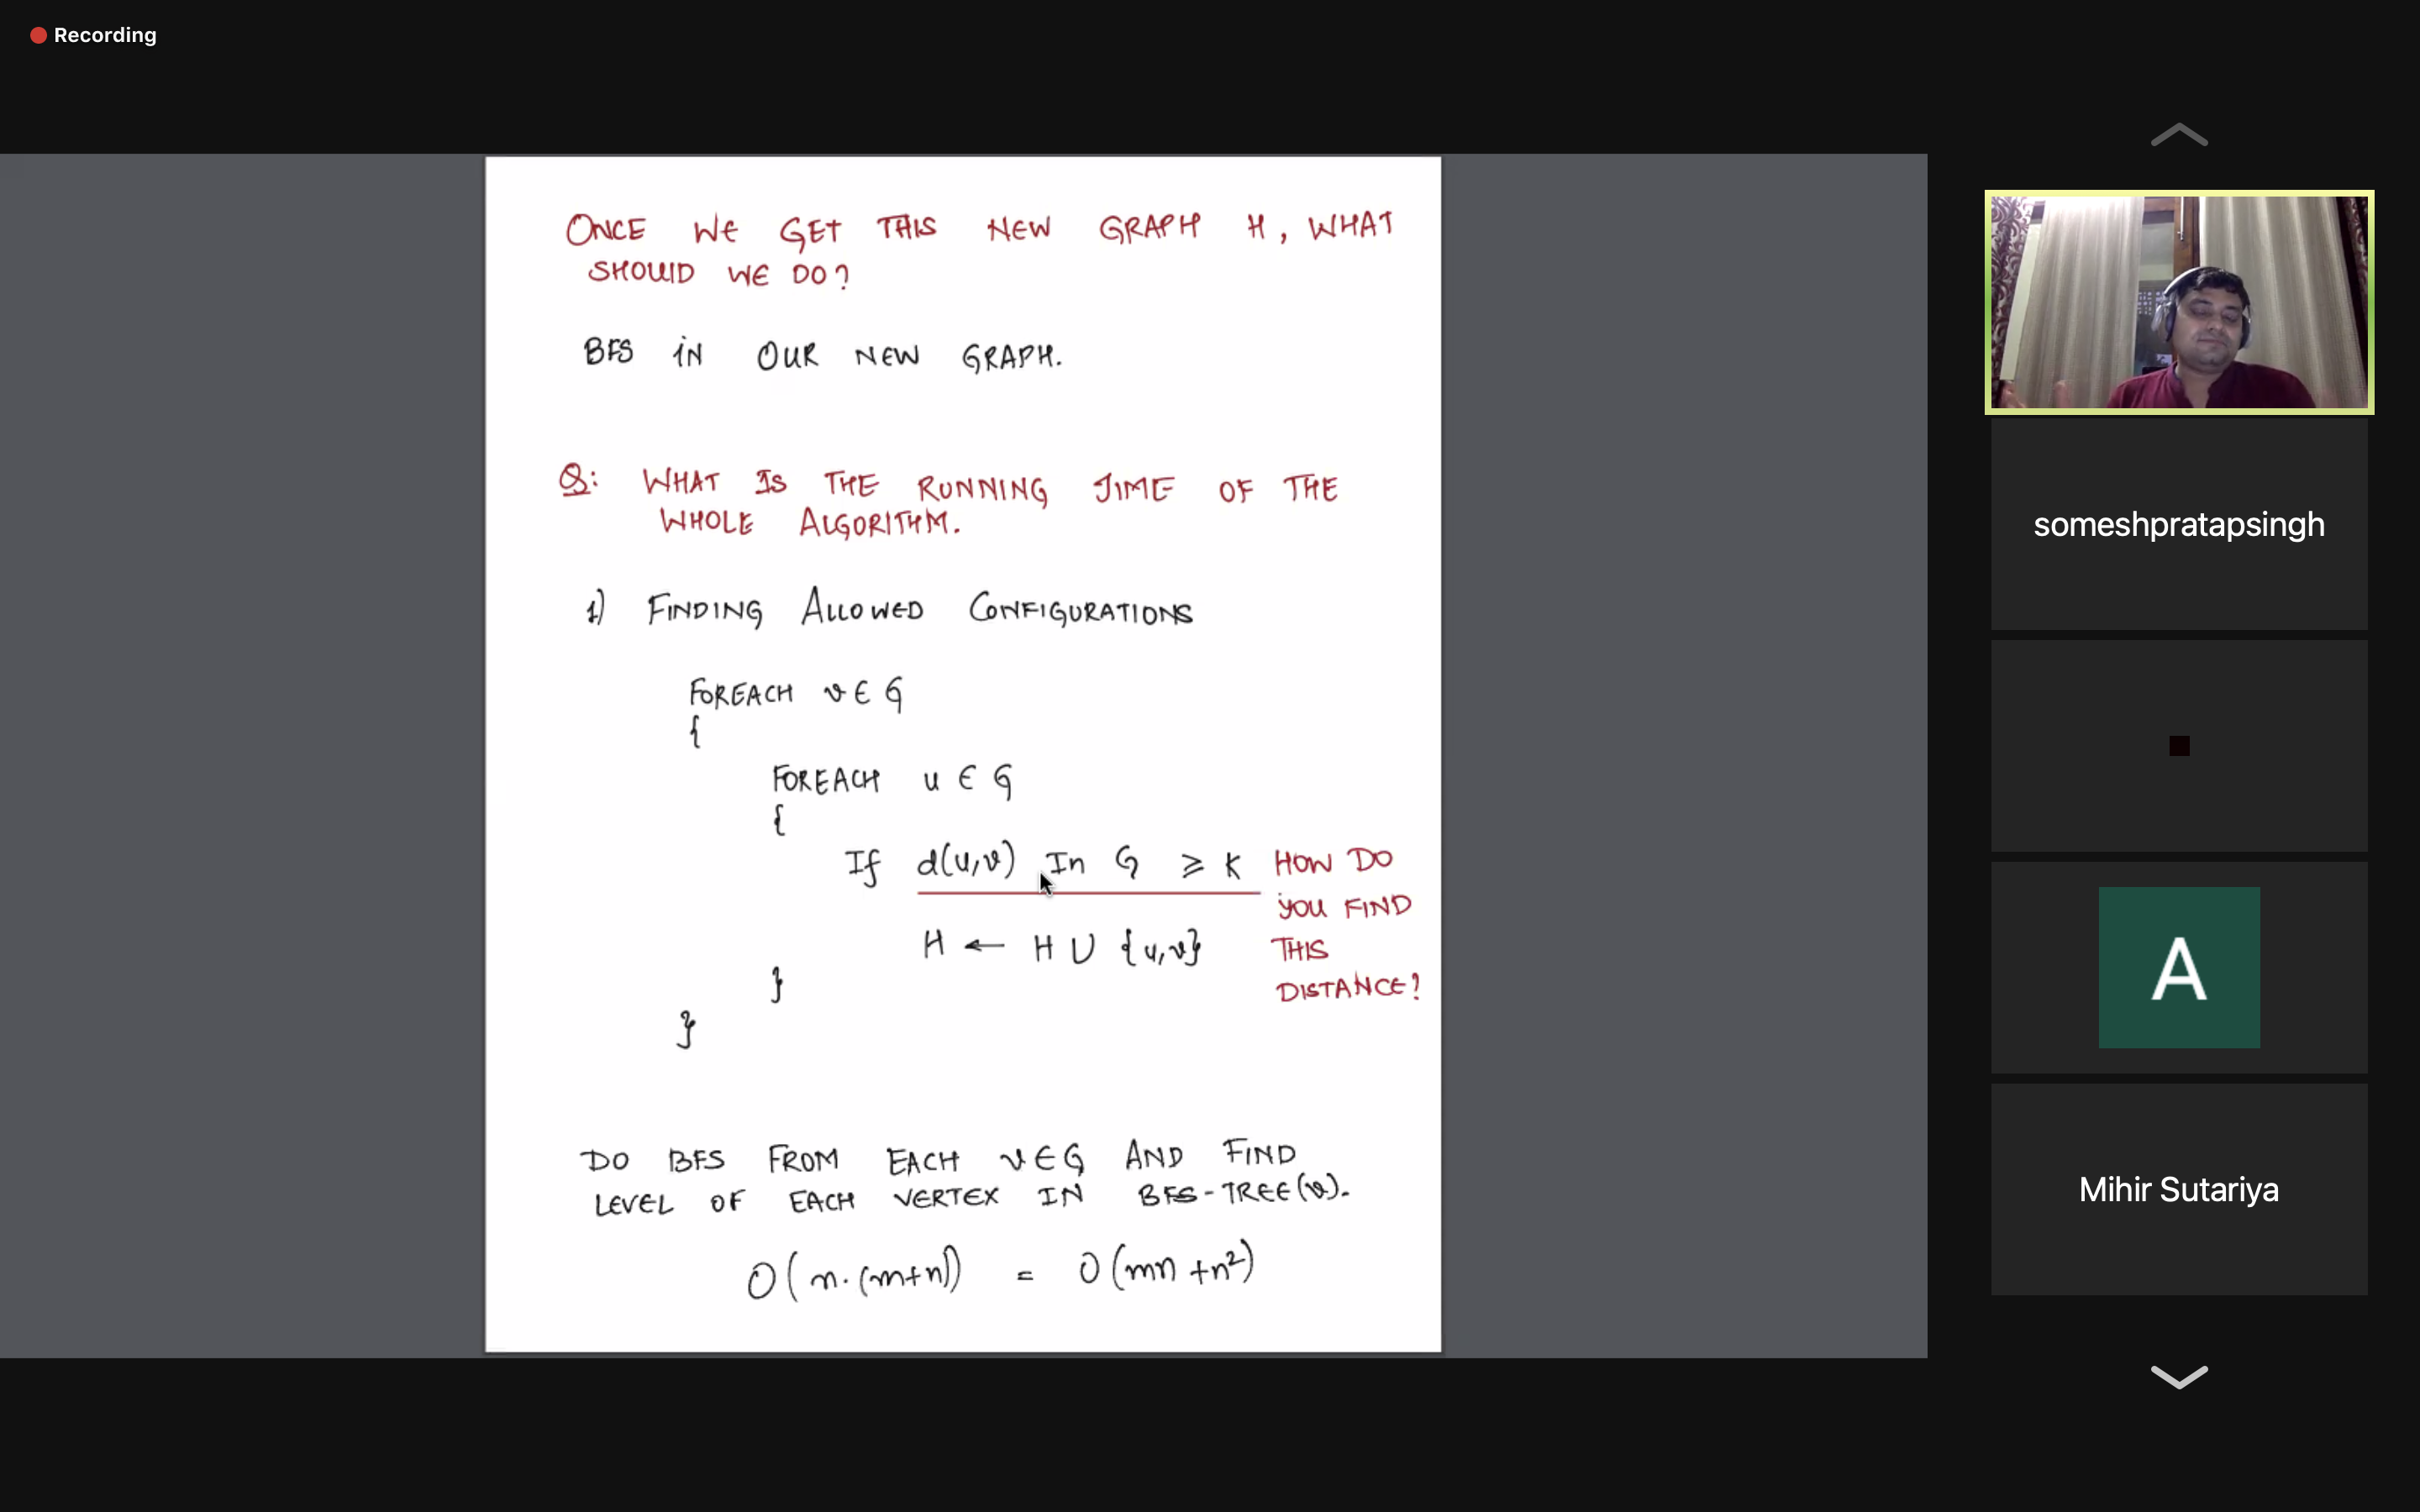 Recording
ONCE WE GET THIS NEW GRAPH H, WHAT
SHOULD WE DO?
BFS IN OUR NEW GRAPH.
Q: WHAT IS THE RUNNING TIME OF THE
WHOLE ALGORITHM.
1) FINDING ALLOWED CONFIGURATIONS
FOREACH v ∈ G
{
FOREACH u ∈ G
{
If d(u,v) In G ⩾ K HOW DO
YOU FIND
H ← H ∪ {u,v} THIS
} DISTANCE?
}
DO BFS FROM EACH v∈G AND FIND
LEVEL OF EACH VERTEX IN BFS-TREE(v).
O(n.(m+n)) = O(mn +n²)
someshpratapsingh
A
Mihir Sutariya